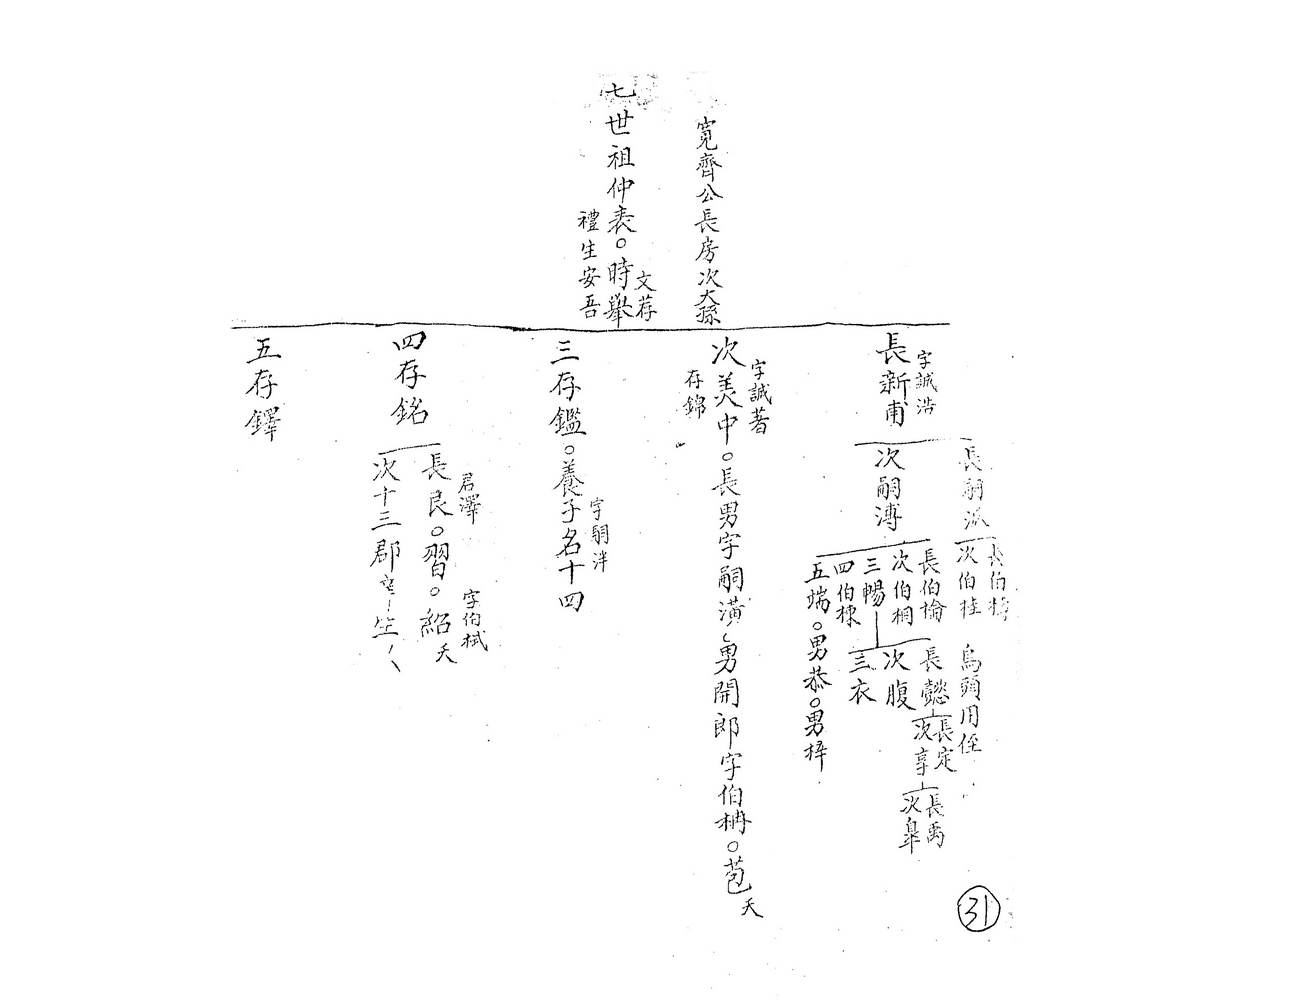 寬齊公長房次大孫
七世祖仲表。時舉
文荐
禮生安吾
長新甫
字誠浩
長嗣派
長伯
次伯桂
烏頭用侄
次嗣溥
長伯棆
次伯桐
三暢
四伯棟
五端。男恭。男梓
長懿
次腹
三衣
長定
次享
長禹
次皐
次美中。長男字嗣潢
男開郎字伯柟。苞夭
字誠著
存錦
三存鑑。養子名十四
字嗣泮
四存銘
長良。習。紹夭
君澤
字伯栻
次十三郡
五存鐸
31